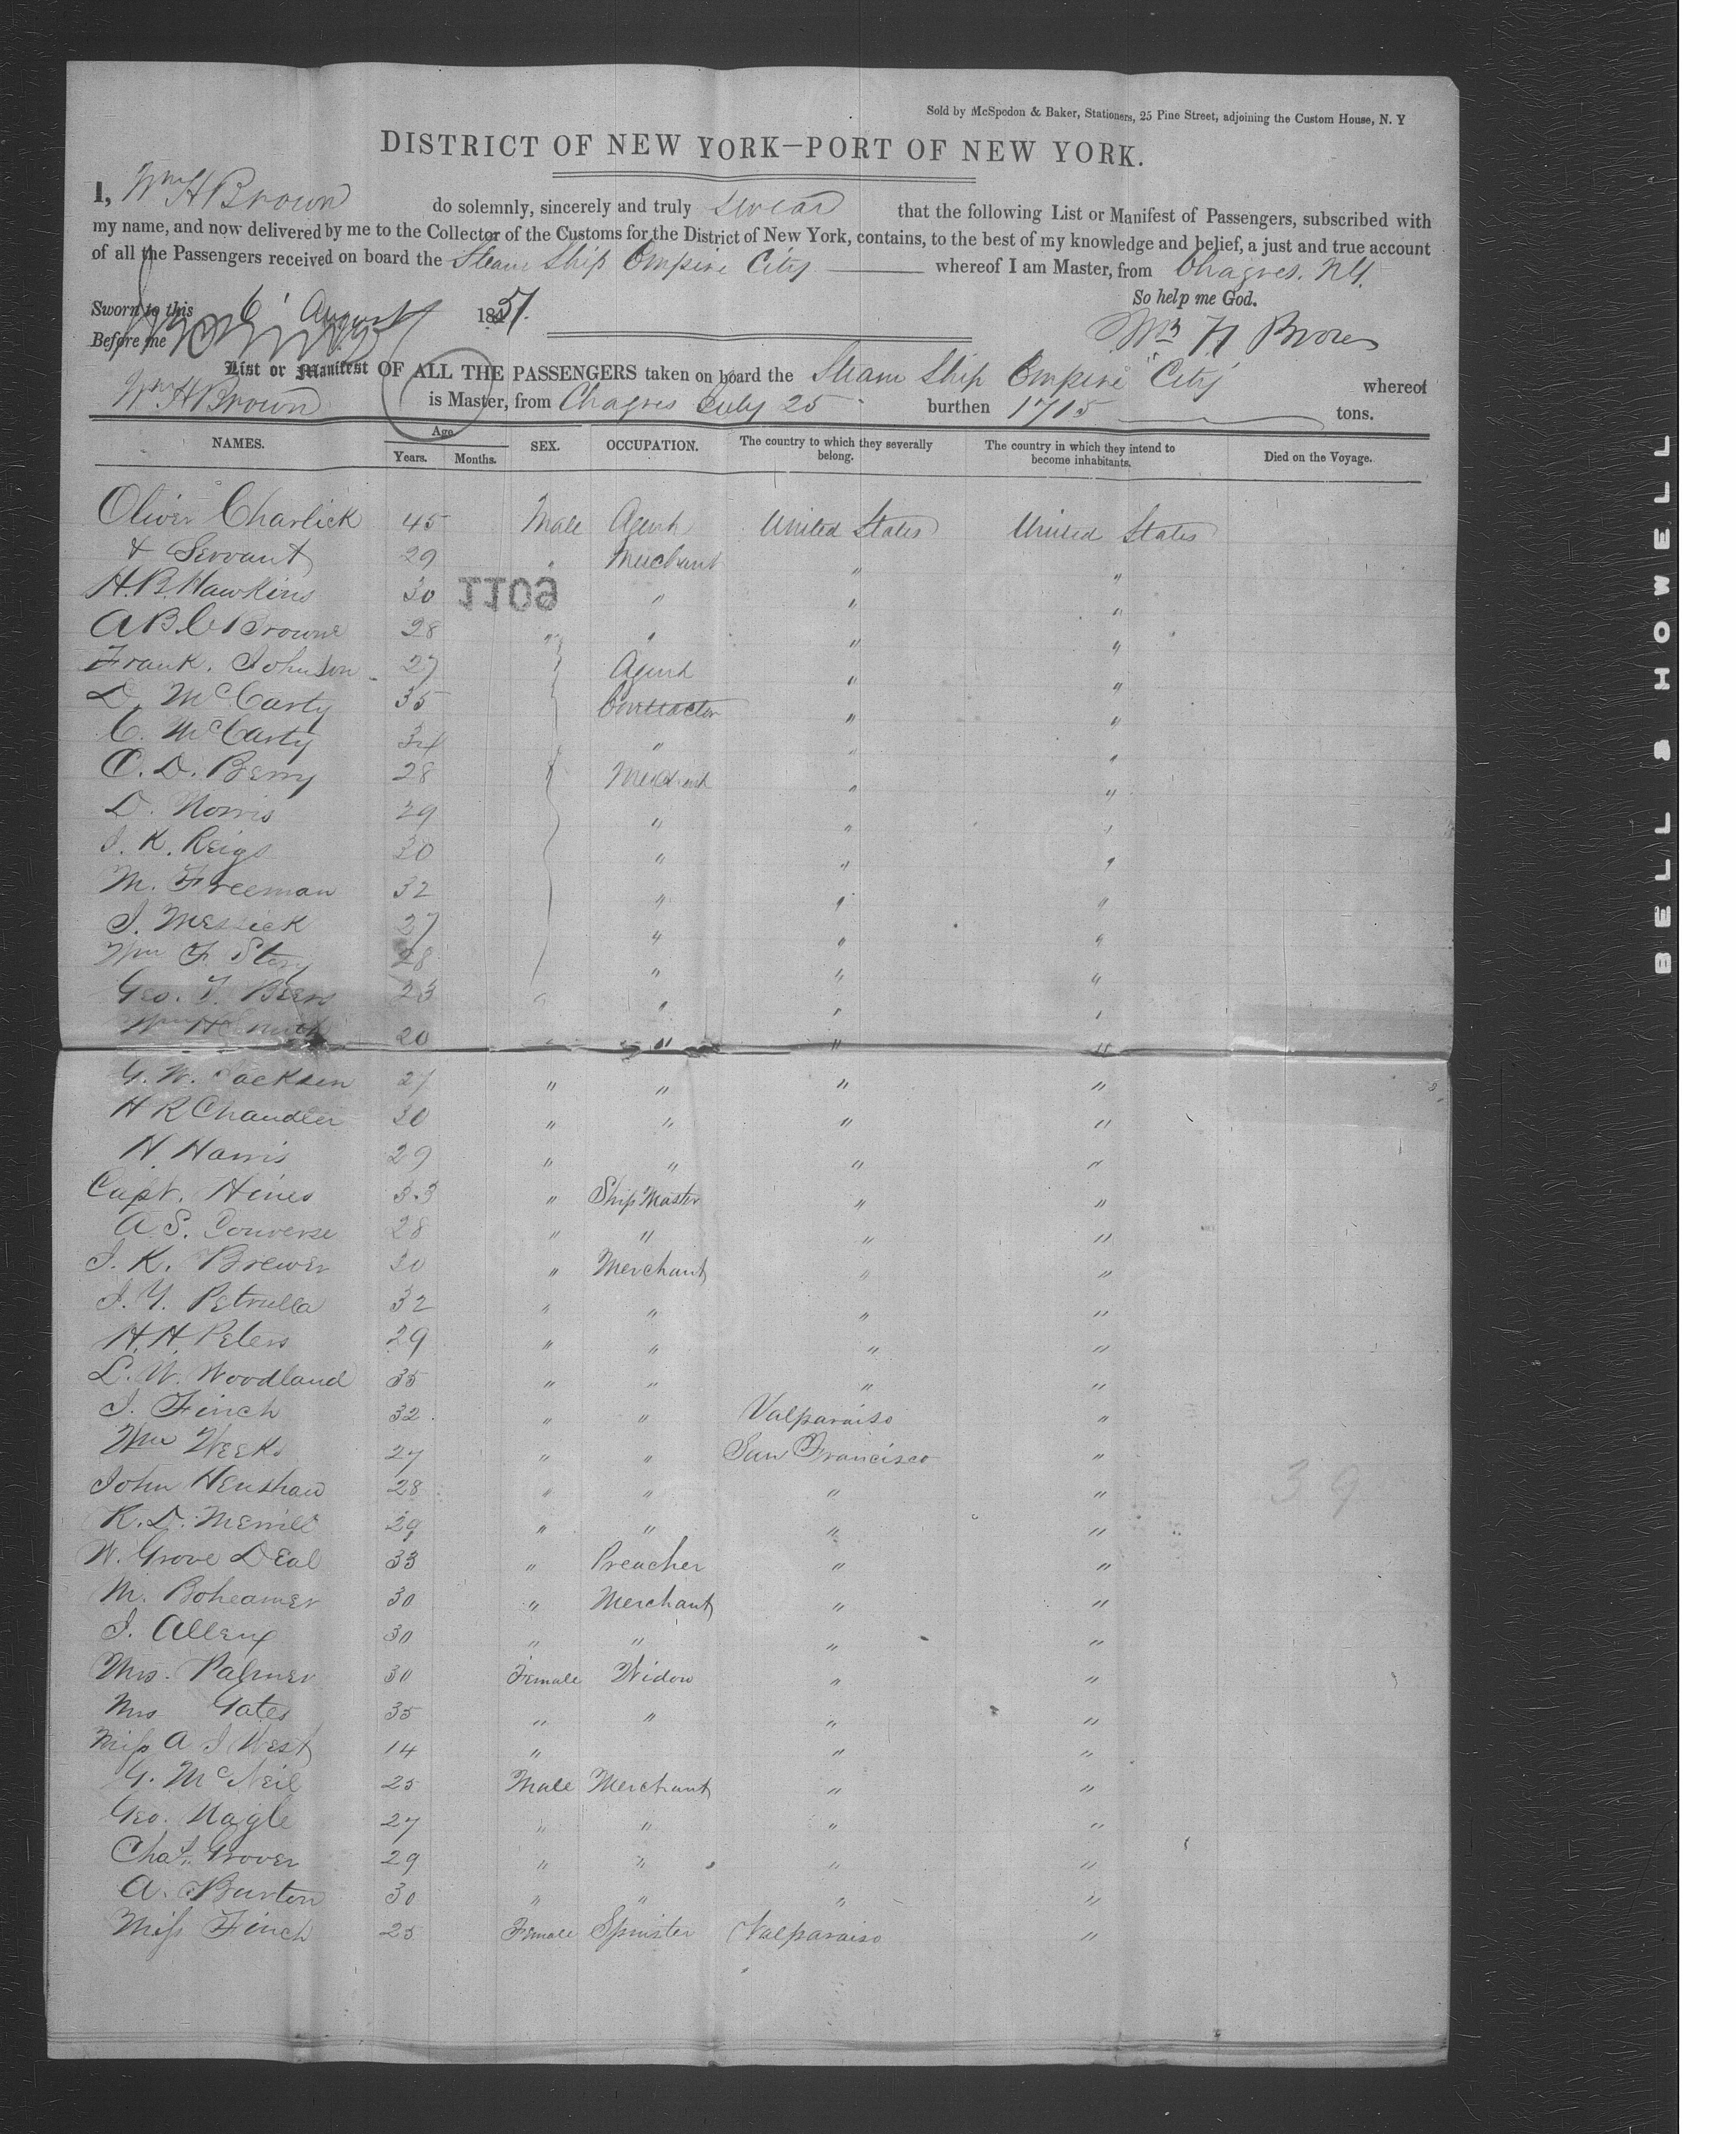 Sold by McSpedon & Baker, Stationers, 25 Pine Street, adjoining the Custom House, N. Y
DISTRICT OF NEW YORK—PORT OF NEW YORK.
I, Wm H Brown do solemnly, sincerely and truly swear that the following List or Manifest of Passengers, subscribed with
my name, and now delivered by me to the Collector of the Customs for the District of New York, contains, to the best of my knowledge and belief, a just and true account
of all the Passengers received on board the Steam Ship Empire City whereof I am Master, from Chagres. N.G.
So help me God.
Sworn to this 6 August 1851.
Before me
Wm H Brown
List or Manifest OF ALL THE PASSENGERS taken on board the Steam Ship Empire City whereof
Wm H Brown is Master, from Chagres July 25 burthen 1715 tons.
NAMES. Age Years. Months. SEX. OCCUPATION. The country to which they severally belong. The country in which they intend to become inhabitants. Died on the Voyage.
Oliver Charlick 45 Male Agent United States United States
& Servant 29 " Merchant " "
H. B. Hawkins 30 " " "
1109
A B C Browne 28 " " " "
Frank. Johnson 27 Agent " "
D. McCarty 35 Contractor " "
C. McCarty 34 " " "
C. D. Berry 28 Merchant " "
D. Norris 29 " " "
J. K. Reigs 30 " " "
M. Freeman 32 " " "
J. Messick 27 " " "
Wm F. Story 28 " " "
Geo. T. Beers 23 " " " "
Wm H Smith 20 " " " "
G. W. Jackson 27 " " " "
H R Chandler 30 " " " "
H Harris 29 " " " "
Capt. Hines 33 " Ship Master " "
A S. Converse 28 " " " "
J. K. Brewer 30 " Merchant " "
J. Y. Petrulla 32 " " " "
H. H. Peters 29 " " " "
L. W. Woodland 35 " " " "
J. Finch 32 " " Valparaiso "
Wm Weeks 27 " " San Francisco "
John Henshaw 28 " " " "
39
R. D. Merrill 29 " " " "
W. Grove Deal 33 " Preacher " "
M. Boheamer 30 " Merchant " "
J. Alleny 30 " " " "
Mrs. Palmer 30 Female Widow " "
Mrs Gates 35 " " " "
Miss A J West 14 " " "
G. McNeil 25 Male Merchant " "
Geo. Nagle 27 " " " "
Chas. Grover 29 " " " "
A. Burton 30 " " " "
Miss Finch 25 Female Spinster Valparaiso "
BELL & HOWELL